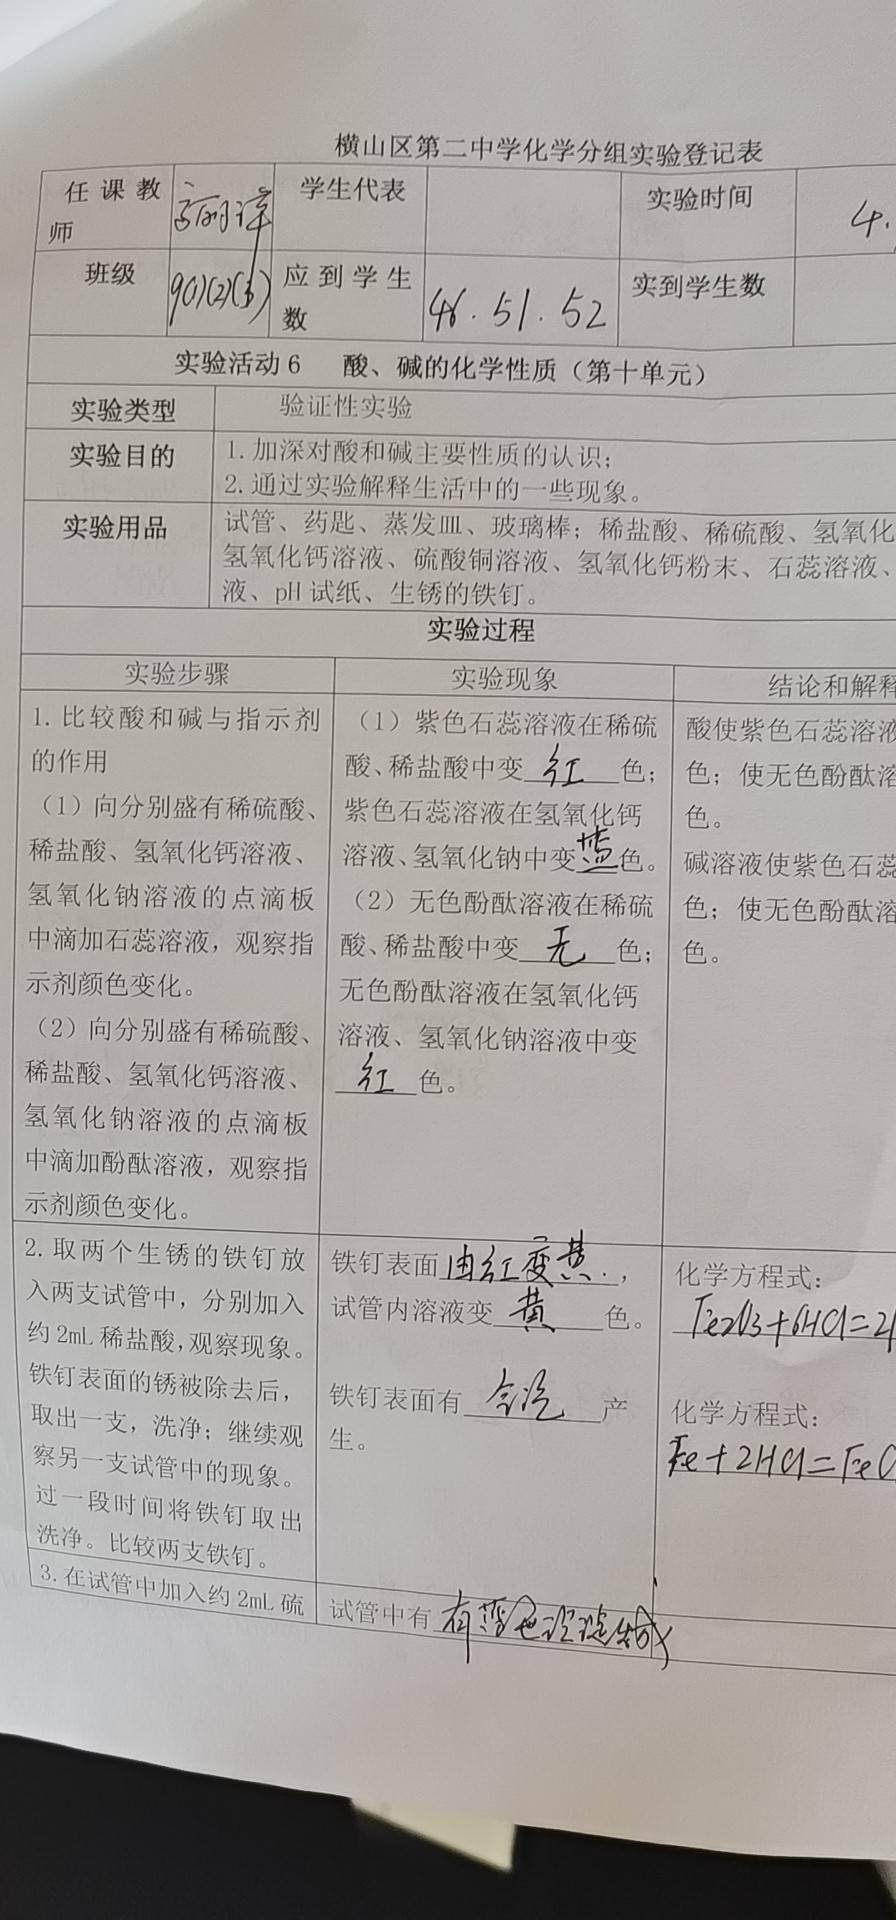 横山区第二中学化学分组实验登记表
任课教师
学生代表
实验时间
4.
班级
9(1)(2)(3)
应到学生数
46.51.52
实到学生数
实验活动6 酸、碱的化学性质（第十单元）
实验类型
验证性实验
实验目的
1.加深对酸和碱主要性质的认识；
2.通过实验解释生活中的一些现象。
实验用品
试管、药匙、蒸发皿、玻璃棒；稀盐酸、稀硫酸、氢氧化
氢氧化钙溶液、硫酸铜溶液、氢氧化钙粉末、石蕊溶液、
液、pH试纸、生锈的铁钉。
实验过程
实验步骤
实验现象
结论和解释
1.比较酸和碱与指示剂
的作用
（1）向分别盛有稀硫酸、
稀盐酸、氢氧化钙溶液、
氢氧化钠溶液的点滴板
中滴加石蕊溶液，观察指
示剂颜色变化。
（2）向分别盛有稀硫酸、
稀盐酸、氢氧化钙溶液、
氢氧化钠溶液的点滴板
中滴加酚酞溶液，观察指
示剂颜色变化。
（1）紫色石蕊溶液在稀硫
酸、稀盐酸中变红色；
紫色石蕊溶液在氢氧化钙
溶液、氢氧化钠中变蓝色。
（2）无色酚酞溶液在稀硫
酸、稀盐酸中变无色；
无色酚酞溶液在氢氧化钙
溶液、氢氧化钠溶液中变
红色。
酸使紫色石蕊溶液
色；使无色酚酞溶
色。
碱溶液使紫色石蕊
色；使无色酚酞溶
色。
2.取两个生锈的铁钉放
入两支试管中，分别加入
约2mL稀盐酸，观察现象。
铁钉表面的锈被除去后，
取出一支，洗净；继续观
察另一支试管中的现象。
过一段时间将铁钉取出
洗净。比较两支铁钉。
铁钉表面由红变黄.，
试管内溶液变黄色。
铁钉表面有产
生。
化学方程式：
Fe2O3+6HCl=2
化学方程式：
Fe+2HCl=FeC
3.在试管中加入约2mL硫
试管中有有蓝色沉淀生成